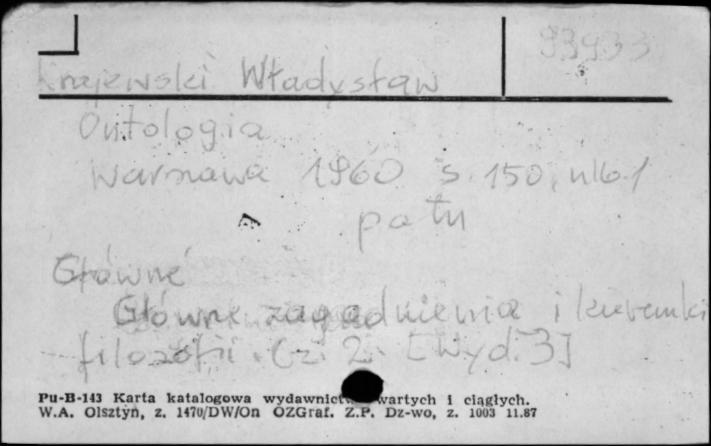 93933
Krajewski Władysław
Ontologia
Warszawa 1960 s. 150, nlb. 1
patrz
Główne
Główne zagadnienia i kierunki
filozofii. Cz. 2. [Wyd. 3]
Pu-B-143 Karta katalogowa wydawnictw zwartych i ciągłych.
W.A. Olsztyn, z. 1470/DW/On OZGraf. Z.P. Dz-wo, z. 1003 11.87